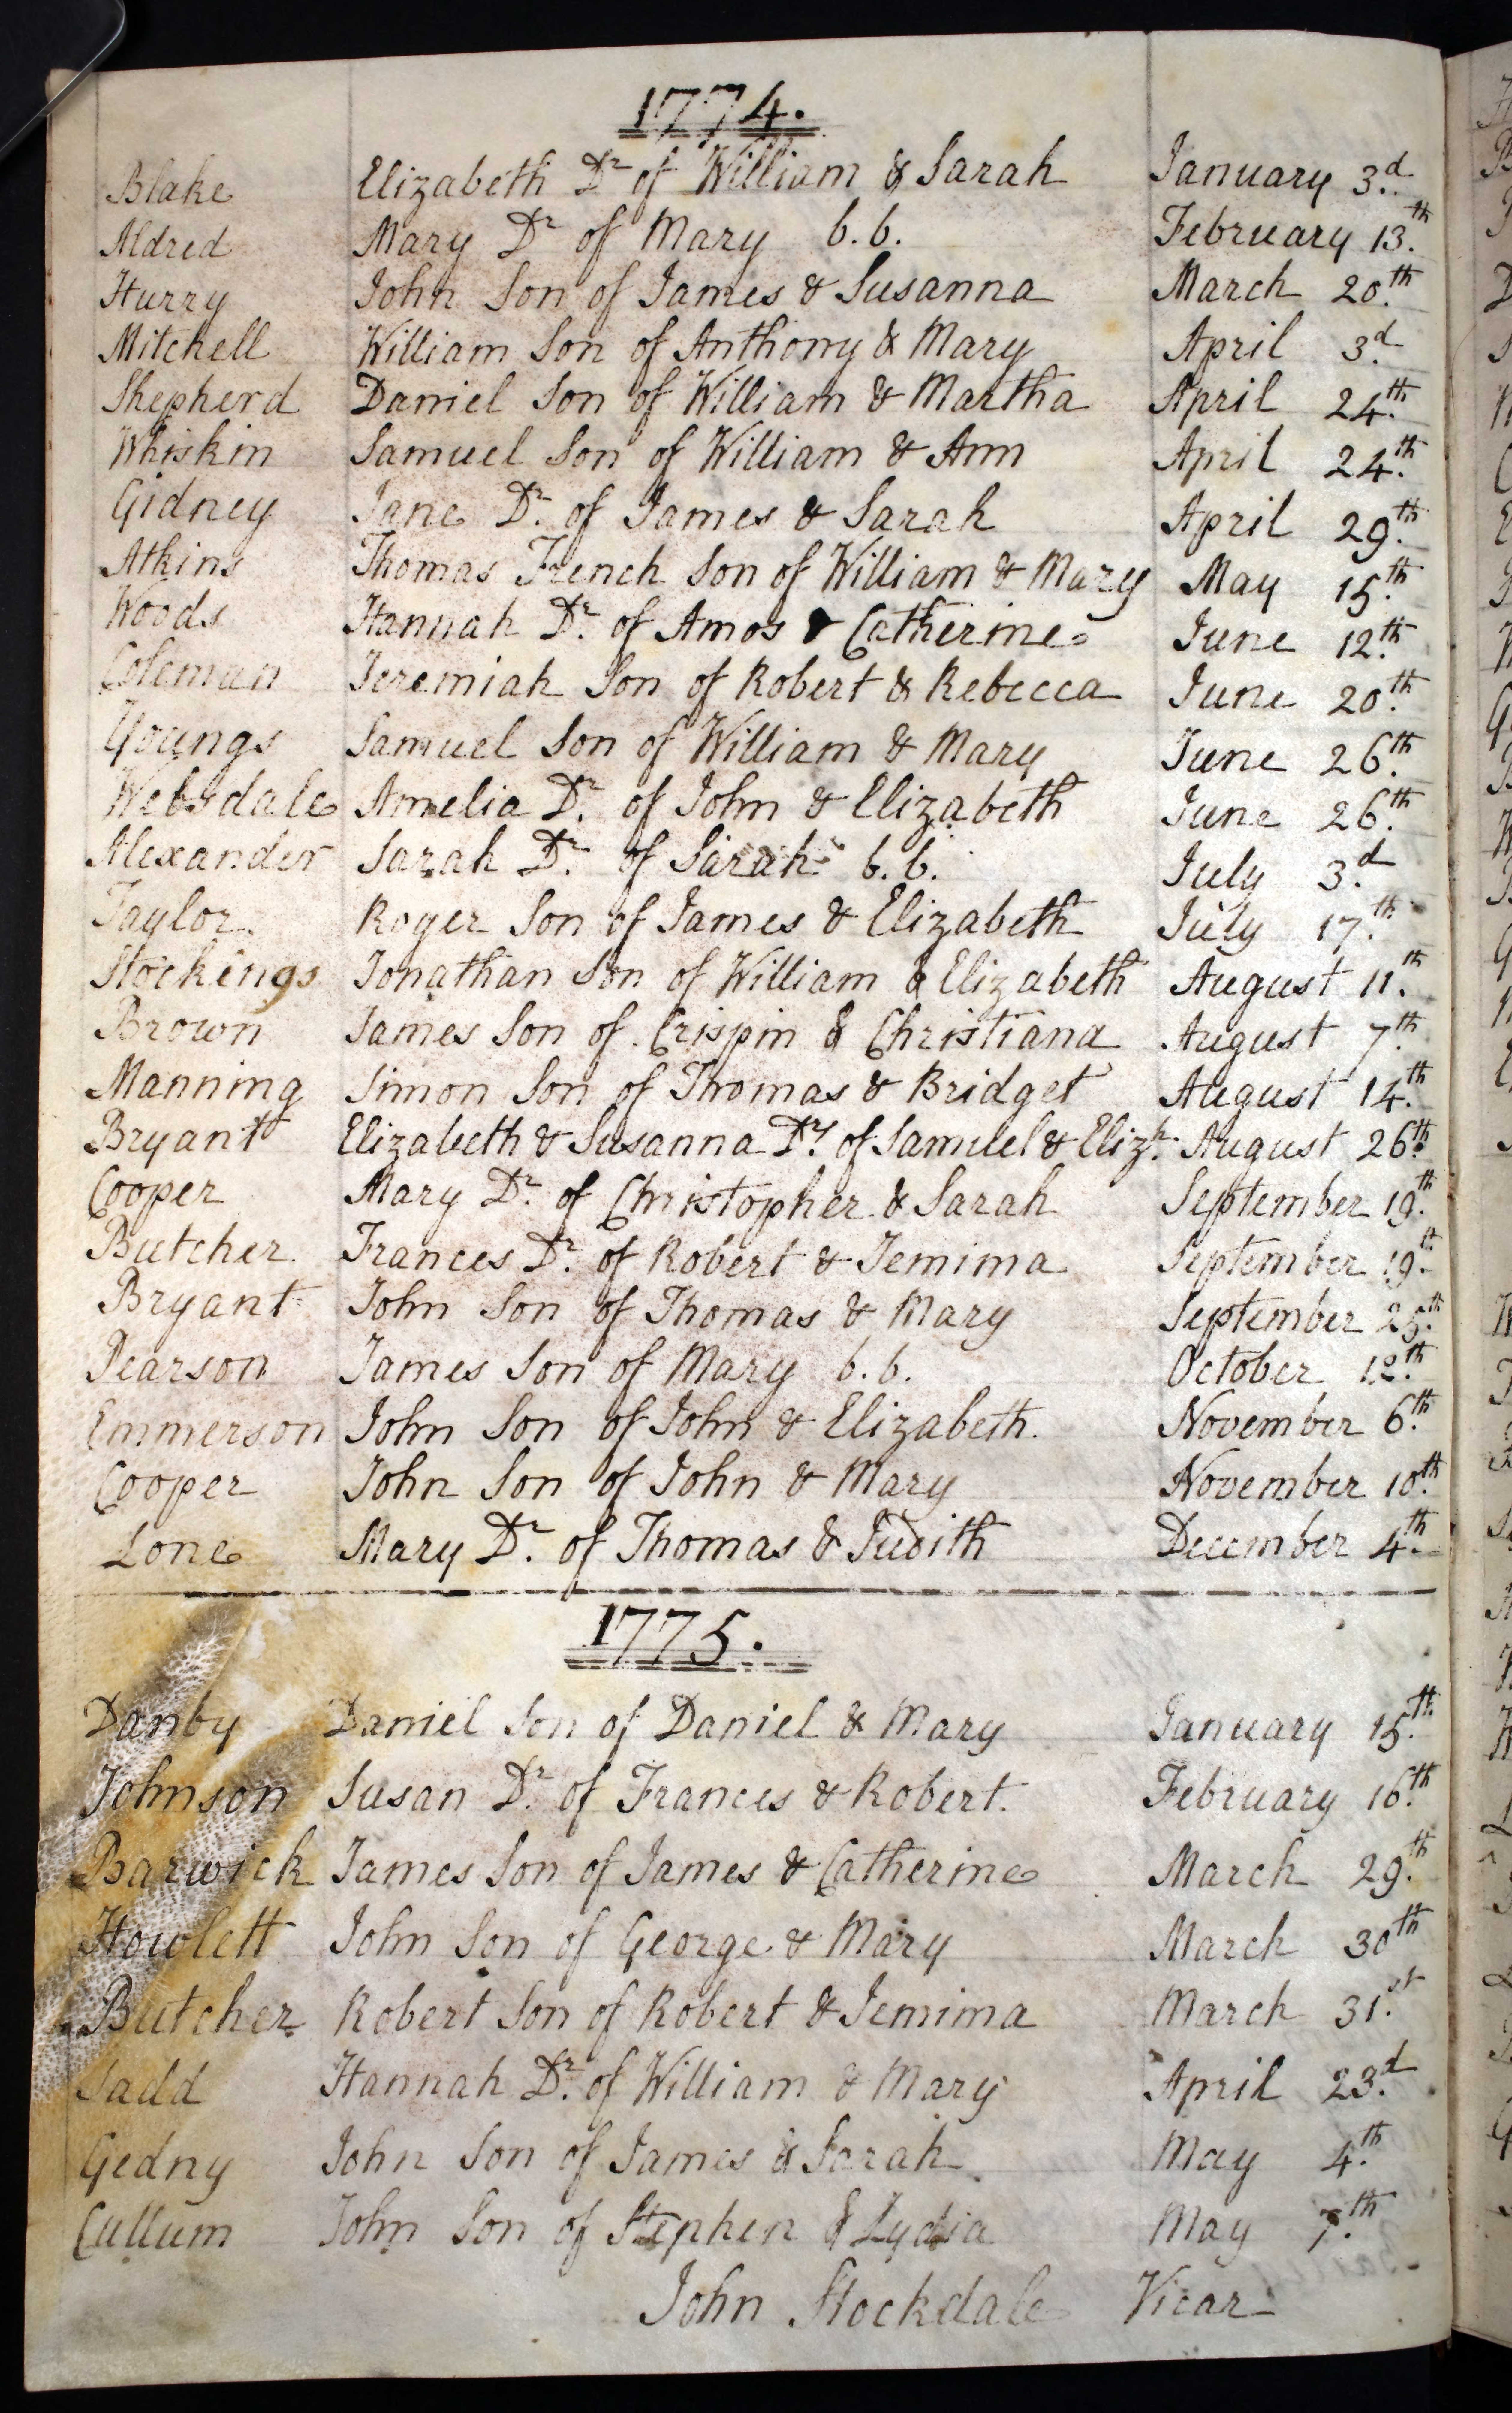 1774.
Blake Elizabeth Dr of William & Sarah January 3.d
Aldred Mary Dr of Mary b.b. February 13.th
Hurry John Son of James & Susanna March 20.th
Mitchell William Son of Anthony & Mary April 3.d
Shepherd Daniel Son of William & Martha April 24.th
Whiskin Samuel Son of William & Ann April 24.th
Gidney Jane Dr. of James & Sarah April 29.th
Atkins Thomas French Son of William & Mary May 15.th
Woods Hannah Dr. of Amos & Catherine June 12.th
Coleman Jeremiah Son of Robert & Rebecca June 20.th
Youngs Samuel Son of William & Mary June 26.th
Websdale Amelia Dr. of John & Elizabeth June 26.th
Alexander Sarah Dr. of Sarah b.b. July 3.d
Taylor. Roger Son of James & Elizabeth July 17.th
Stockings Jonathan Son of William & Elizabeth August 11.th
Brown James Son of Crispin & Christiana August 7.th
Manning Simon Son of Thomas & Bridget August 14.th
Bryant Elizabeth & Susanna Drs. of Samuel & Elizh. August 26.th
Cooper Mary Dr. of Christopher & Sarah September 19.th
Butcher Frances Dr. of Robert & Jemima September 19.th
Bryant John Son of Thomas & Mary September 25.th
Pearson James Son of Mary b.b. October 12.th
Emmerson John Son of John & Elizabeth. November 6.th
Cooper John Son of John & Mary November 10.th
Lone Mary Dr. of Thomas & Judith December 4.th
1775.
Danby Daniel Son of Daniel & Mary January 15.th
Johnson Susan Dr. of Frances & Robert. February 16.th
Barwick James Son of James & Catherine March 29.th
Howlett John Son of George & Mary March 30th
Butcher Robert Son of Robert & Jemima March 31.st
Sadd Hannah Dr. of William & Mary April 23.d
Gedny John Son of James & Sarah May 4.th
Cullum John Son of Stephen & Lydia May 7.th
John Stockdale Vicar